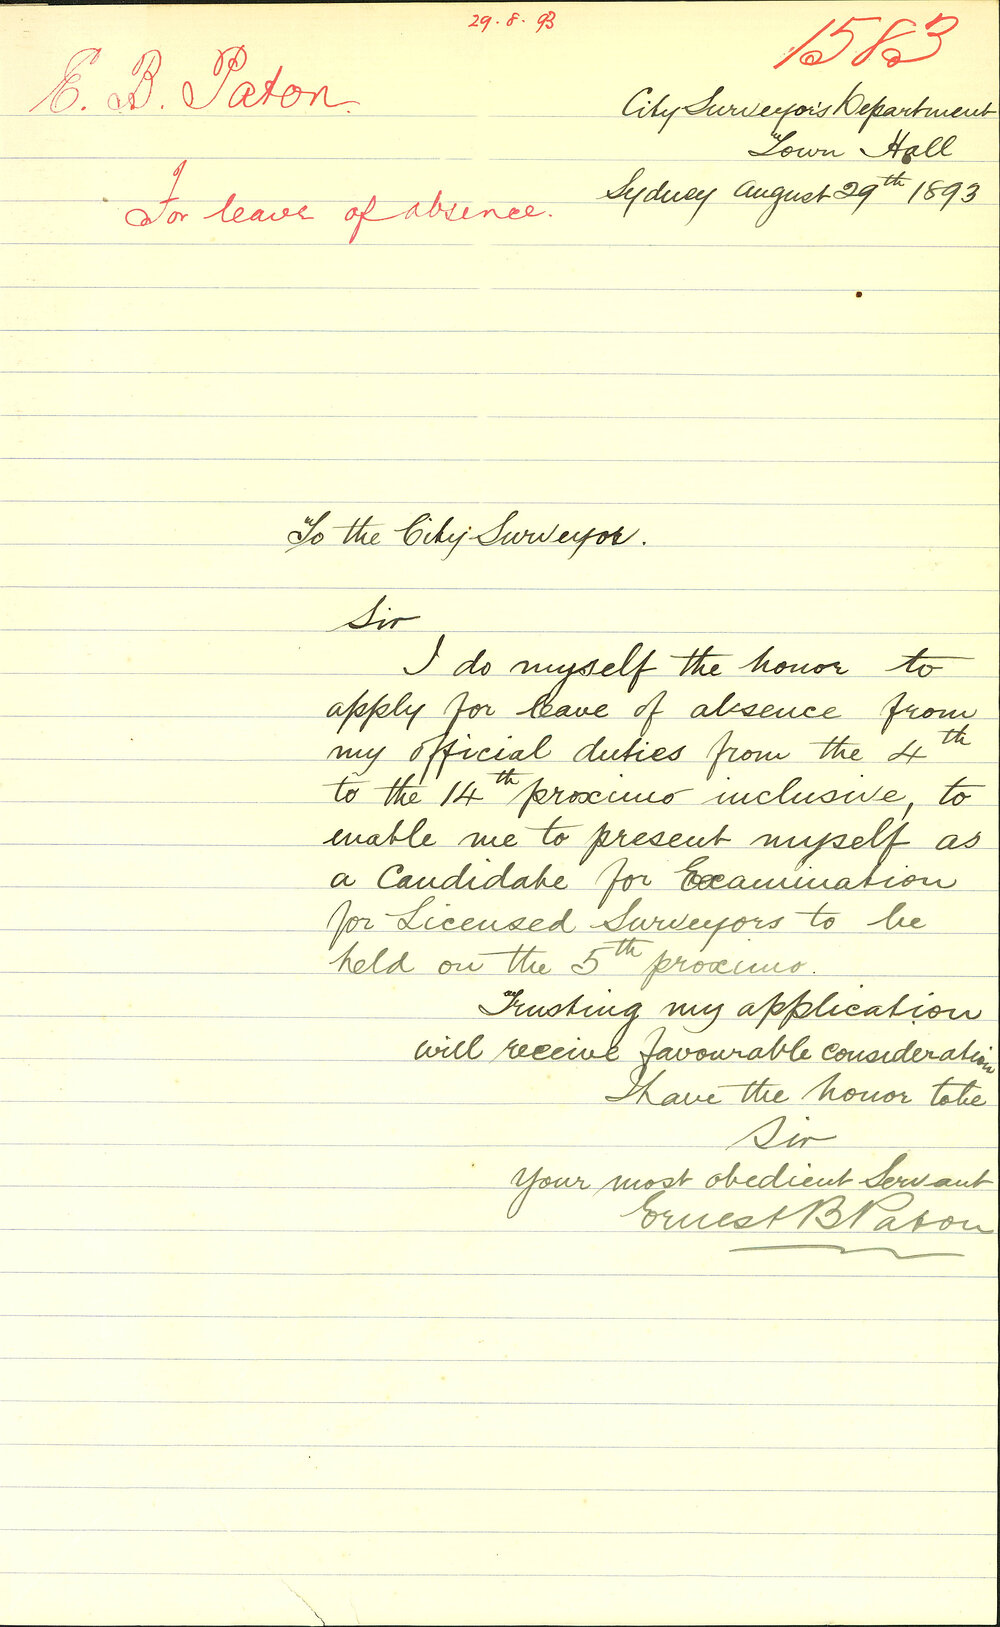 29.8.93
1583
E. B. Paton.
For leave of absence.
City Surveyor's Department
Town Hall
Sydney August 29th 1893
To the City Surveyor.
Sir
I do myself the honor to
apply for leave of absence from
my official duties from the 4th
to the 14th proximo inclusive, to
enable me to present myself as
a Candidate for Examination
for Licensed Surveyors to be
held on the 5th proximo.
Trusting my application
will receive favourable consideration
I have the honor to be
Sir
Your most obedient Servant
Ernest B Paton